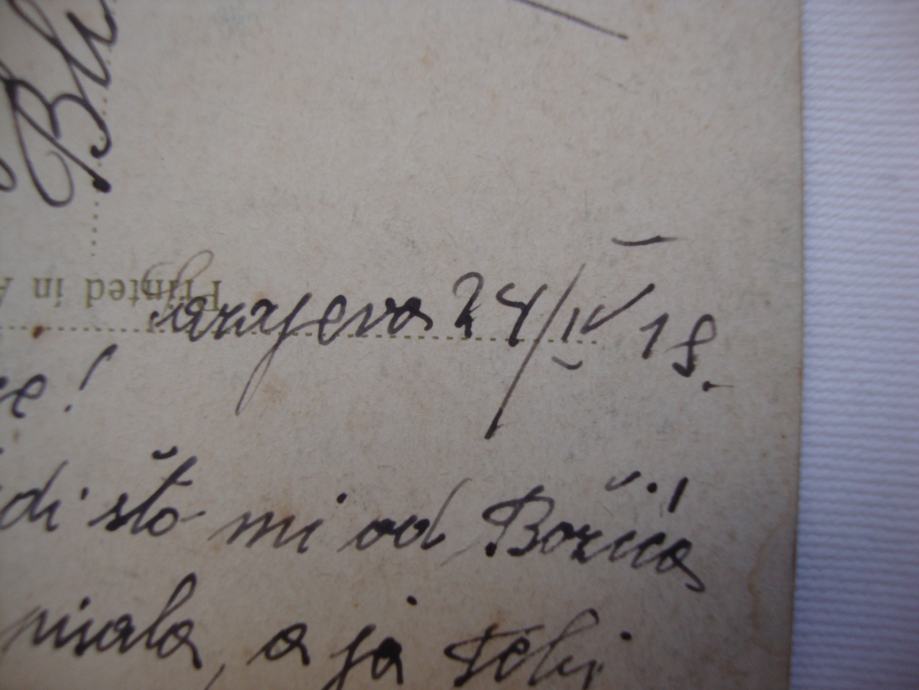 Bli
Printed in A
Sarajevo 24/IV 18.
ce!
di što mi od Božića
pisala, a ja tebi